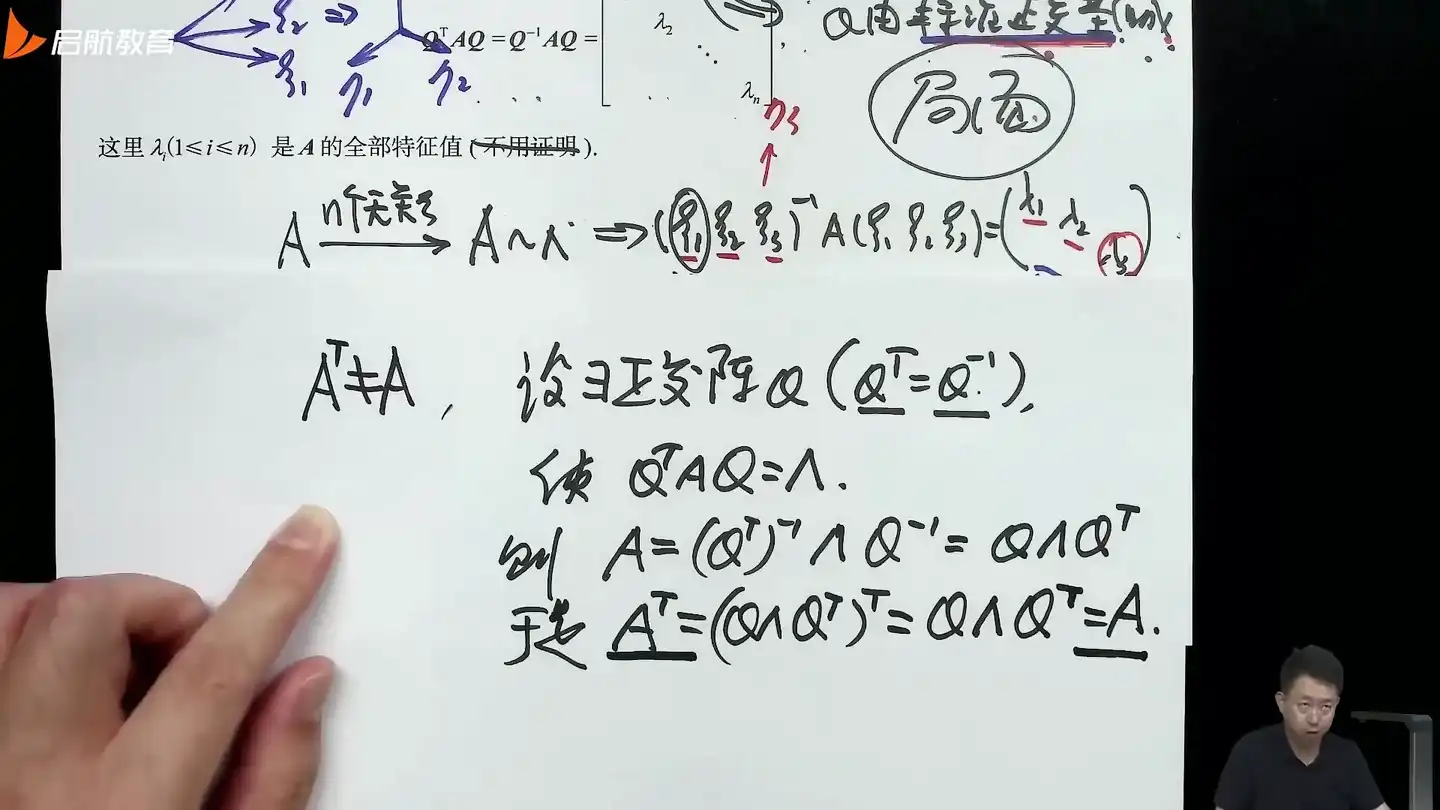 启航教育
ξ₂ ⇒
QᵀAQ = Q⁻¹AQ =
λ₂
λₙ
Q由标准正交基
ξ₁ η₁ η₂
局面
η₃
这里 λᵢ(1≤i≤n) 是 A 的全部特征值 (不用证明).
A n个无关ξ → A ~ Λ ⇒ (ξ₁ ξ₂ ξ₃)⁻¹ A (ξ₁ ξ₂ ξ₃) = (λ₁ λ₂ λ₃)
Aᵀ≠A, 设∃正交阵Q (Qᵀ=Q⁻¹),
使 QᵀAQ=Λ.
则 A=(Qᵀ)⁻¹ΛQ⁻¹=QΛQᵀ
于是 Aᵀ=(QΛQᵀ)ᵀ=QΛQᵀ=A.